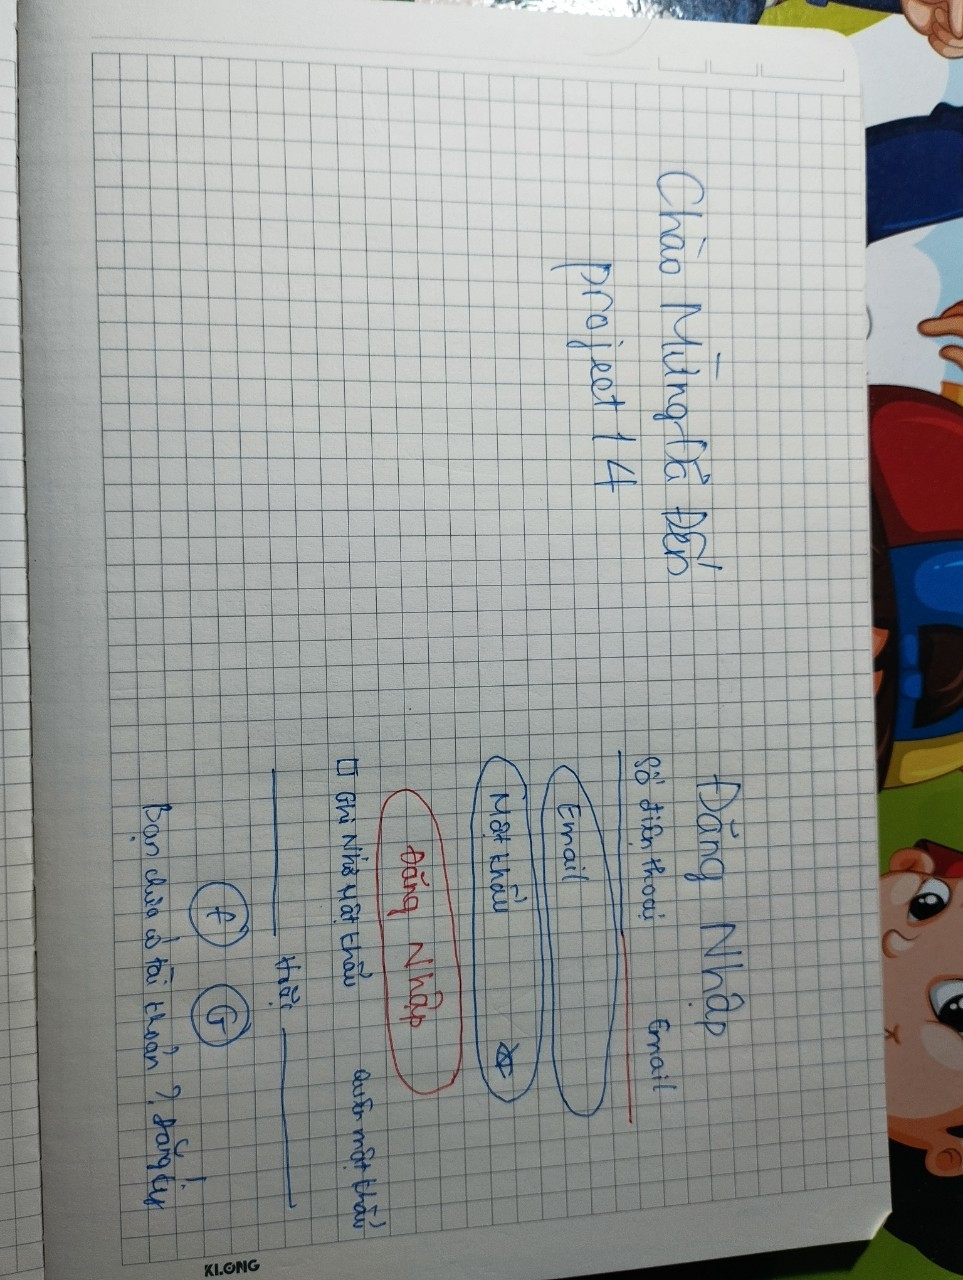 Chào Mừng Đã Đến
project 14
Đăng Nhập
Số điện thoại Email
Email
Mật khẩu
Đăng Nhập
Ghi Nhớ Mật khẩu Quên mật khẩu
Hoặc
f G
Bạn chưa có tài khoản ? Đăng ký
KLONG